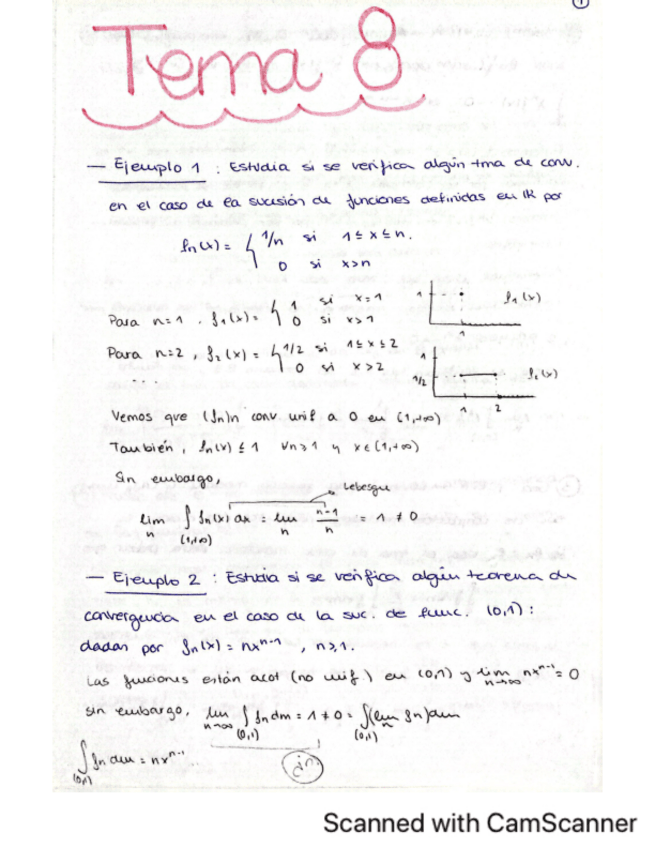 Tema 8
— Ejemplo 1 : Estudia si se verifica algún tma de conv.
en el caso de la sucesión de funciones definidas en IR por
fn(x) = { 1/n si 1 ≤ x ≤ n.
0 si x>n
Para n=1 , f1(x) = { 1 si x=1
0 si x>1
1
f1(x)
1
Para n=2 , f2(x) = { 1/2 si 1≤x≤2
0 si x>2
1
1/2
f2(x)
1 2
Vemos que (fn)n conv unif a 0 en (1,+∞)
También, fn(x) ≤ 1 ∀n≥1 y x∈(1,+∞)
Sin embargo,
Lebesgue
lim n ∫(1,+∞) fn(x) dx = lim n (n-1)/n = 1 ≠ 0
— Ejemplo 2 : Estudia si se verifica algún teorema de
convergencia en el caso de la suc. de func. (0,1) :
dadas por fn(x) = nx^n-1 , n≥1.
Las funciones están acot (no unif.) en (0,1) y lim n→∞ nx^n-1 = 0
Sin embargo, lim n→∞ ∫(0,1) fn dm = 1 ≠ 0 = ∫(0,1) (lim n fn) dm
∫(0,1) fn dm = nx^n-1 ...